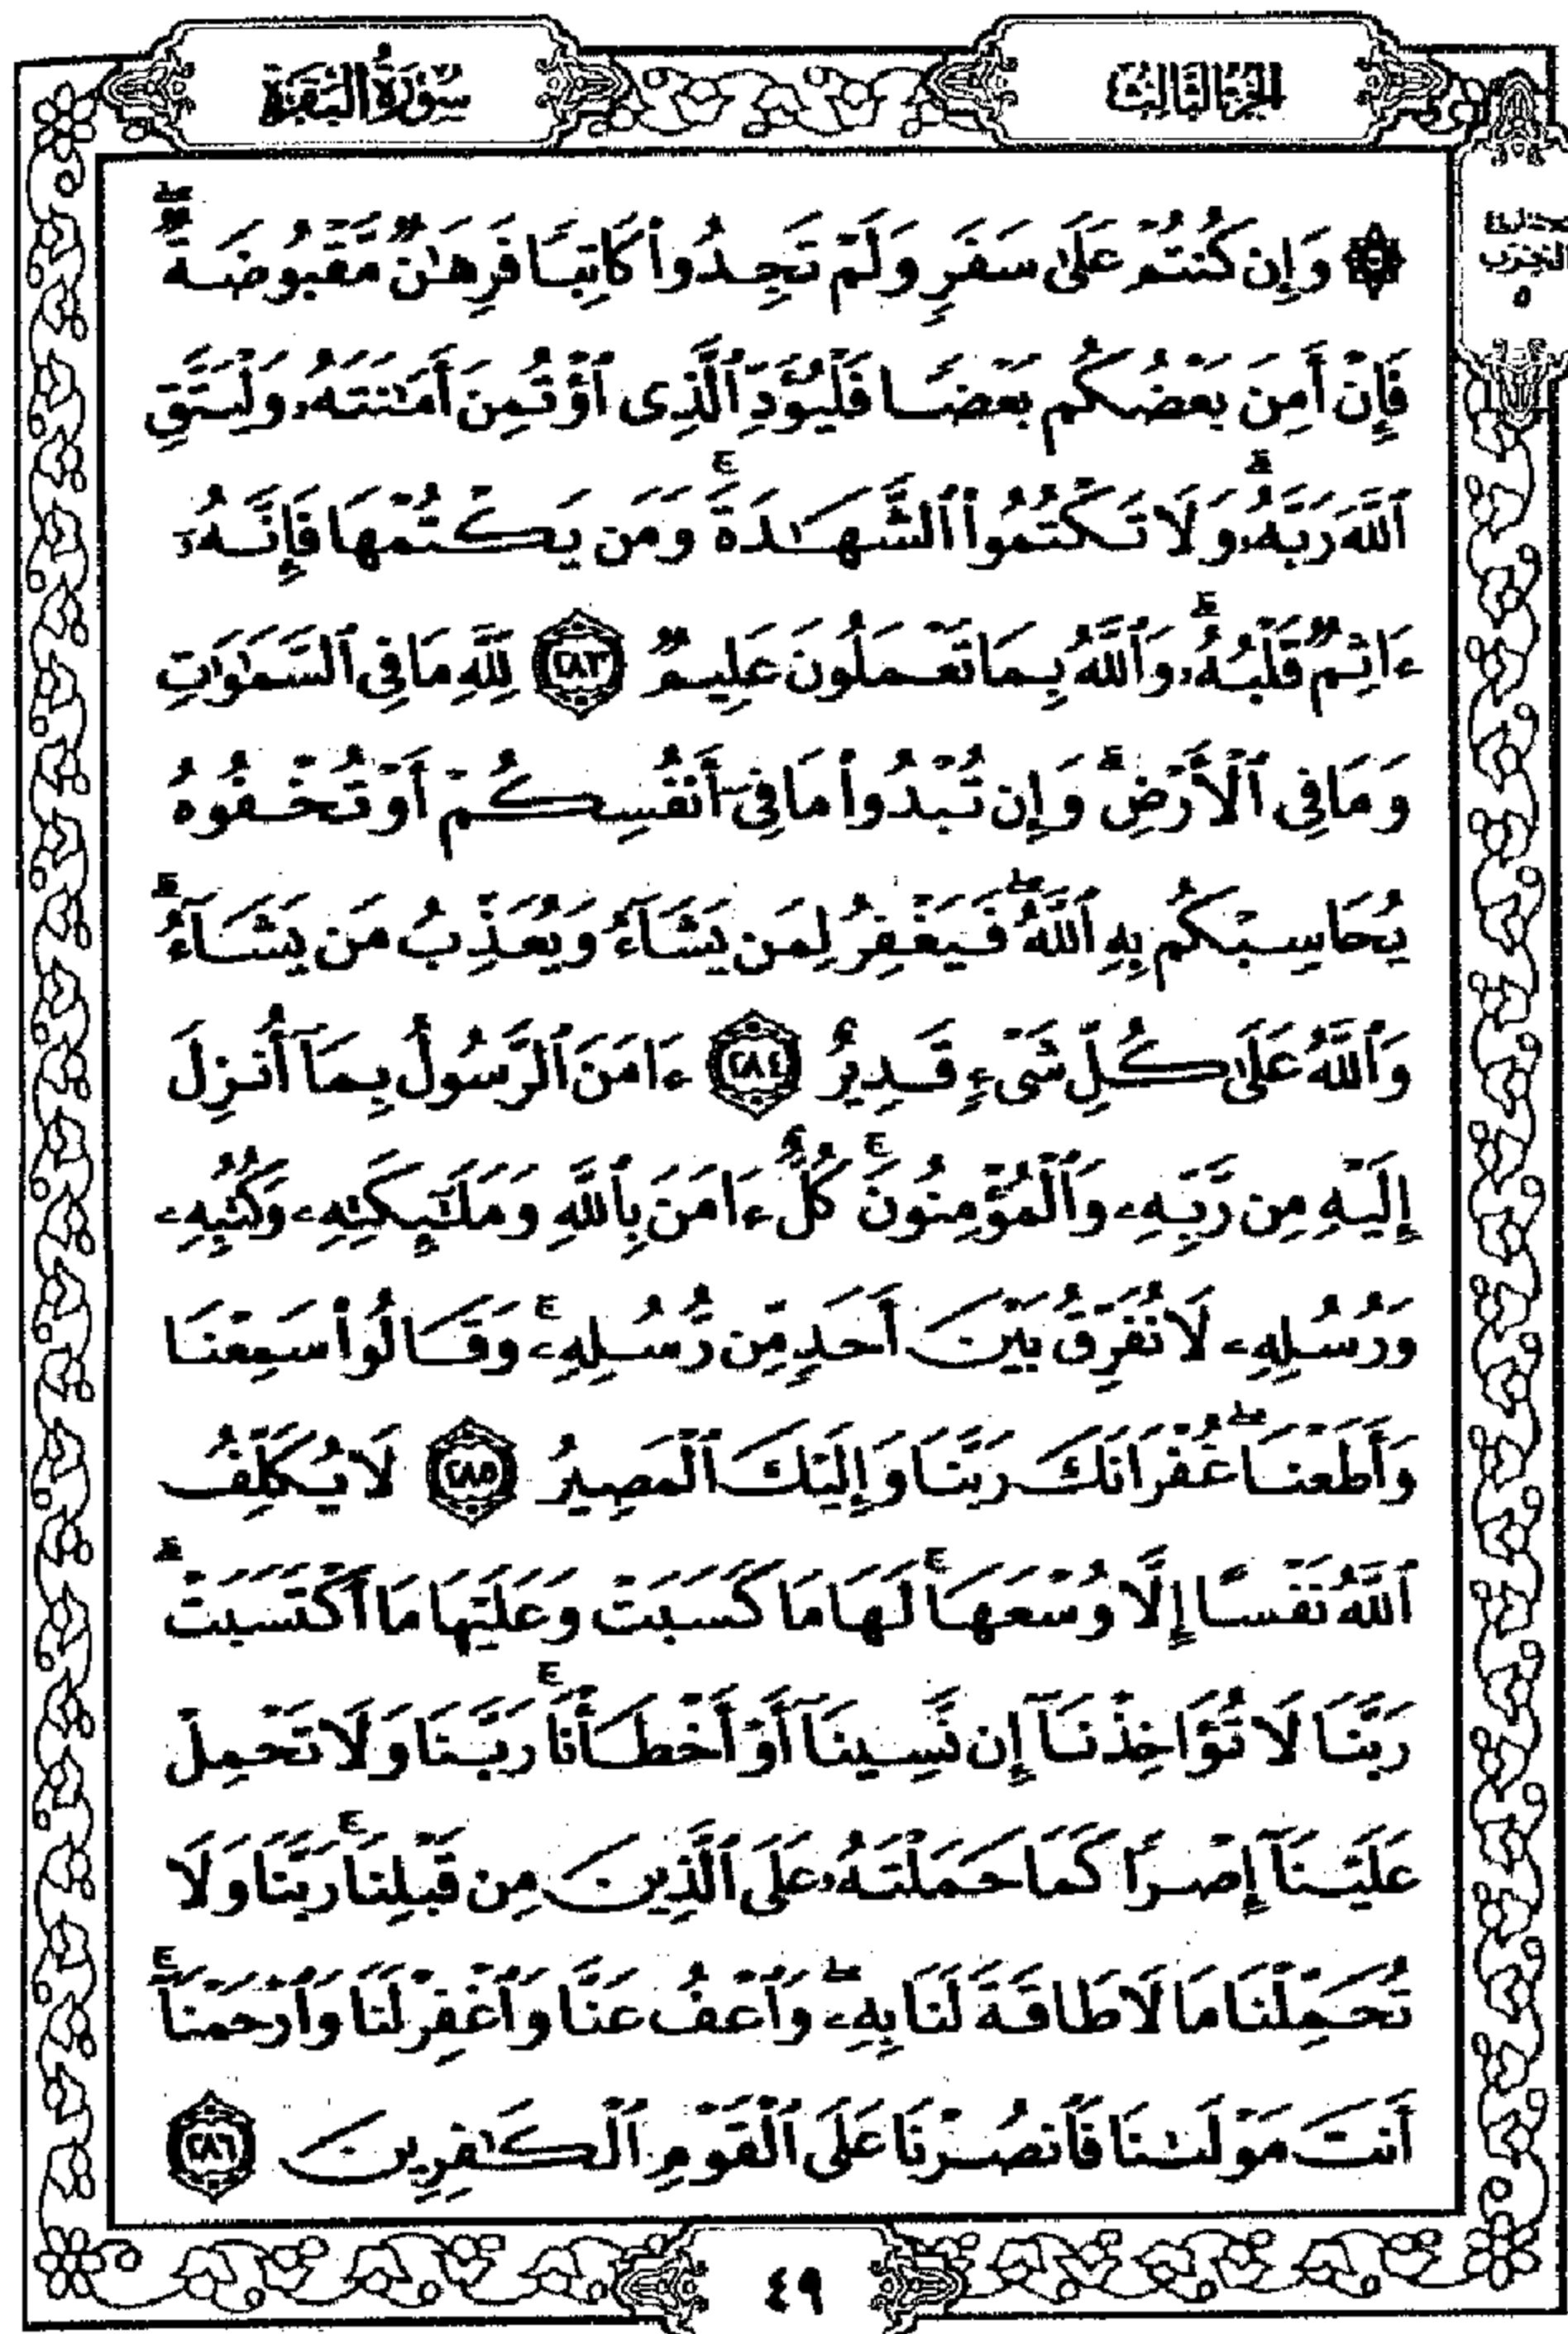 سُورَةُ البَقَرَةِ
الجزء الثالث
الحِزْب
٥
۞ وَإِن كُنتُمْ عَلَىٰ سَفَرٍ وَلَمْ تَجِدُوا۟ كَاتِبًا فَرِهَـٰنٌ مَّقْبُوضَةٌ ۖ
فَإِنْ أَمِنَ بَعْضُكُم بَعْضًا فَلْيُؤَدِّ ٱلَّذِى ٱؤْتُمِنَ أَمَـٰنَتَهُۥ وَلْيَتَّقِ
ٱللَّهَ رَبَّهُۥ ۗ وَلَا تَكْتُمُوا۟ ٱلشَّهَـٰدَةَ ۚ وَمَن يَكْتُمْهَا فَإِنَّهُۥٓ
ءَاثِمٌ قَلْبُهُۥ ۗ وَٱللَّهُ بِمَا تَعْمَلُونَ عَلِيمٌ ٢٨٣ لِّلَّهِ مَا فِى ٱلسَّمَـٰوَٰتِ
وَمَا فِى ٱلْأَرْضِ ۗ وَإِن تُبْدُوا۟ مَا فِىٓ أَنفُسِكُمْ أَوْ تُخْفُوهُ
يُحَاسِبْكُم بِهِ ٱللَّهُ ۖ فَيَغْفِرُ لِمَن يَشَآءُ وَيُعَذِّبُ مَن يَشَآءُ ۗ
وَٱللَّهُ عَلَىٰ كُلِّ شَىْءٍ قَدِيرٌ ٢٨٤ ءَامَنَ ٱلرَّسُولُ بِمَآ أُنزِلَ
إِلَيْهِ مِن رَّبِّهِۦ وَٱلْمُؤْمِنُونَ ۚ كُلٌّ ءَامَنَ بِٱللَّهِ وَمَلَـٰٓئِكَتِهِۦ وَكُتُبِهِۦ
وَرُسُلِهِۦ لَا نُفَرِّقُ بَيْنَ أَحَدٍ مِّن رُّسُلِهِۦ ۚ وَقَالُوا۟ سَمِعْنَا
وَأَطَعْنَا ۖ غُفْرَانَكَ رَبَّنَا وَإِلَيْكَ ٱلْمَصِيرُ ٢٨٥ لَا يُكَلِّفُ
ٱللَّهُ نَفْسًا إِلَّا وُسْعَهَا ۚ لَهَا مَا كَسَبَتْ وَعَلَيْهَا مَا ٱكْتَسَبَتْ ۗ
رَبَّنَا لَا تُؤَاخِذْنَآ إِن نَّسِينَآ أَوْ أَخْطَأْنَا ۚ رَبَّنَا وَلَا تَحْمِلْ
عَلَيْنَآ إِصْرًا كَمَا حَمَلْتَهُۥ عَلَى ٱلَّذِينَ مِن قَبْلِنَا ۚ رَبَّنَا وَلَا
تُحَمِّلْنَا مَا لَا طَاقَةَ لَنَا بِهِۦ ۖ وَٱعْفُ عَنَّا وَٱغْفِرْ لَنَا وَٱرْحَمْنَآ ۚ
أَنتَ مَوْلَىٰنَا فَٱنصُرْنَا عَلَى ٱلْقَوْمِ ٱلْكَـٰفِرِينَ ٢٨٦
٤٩